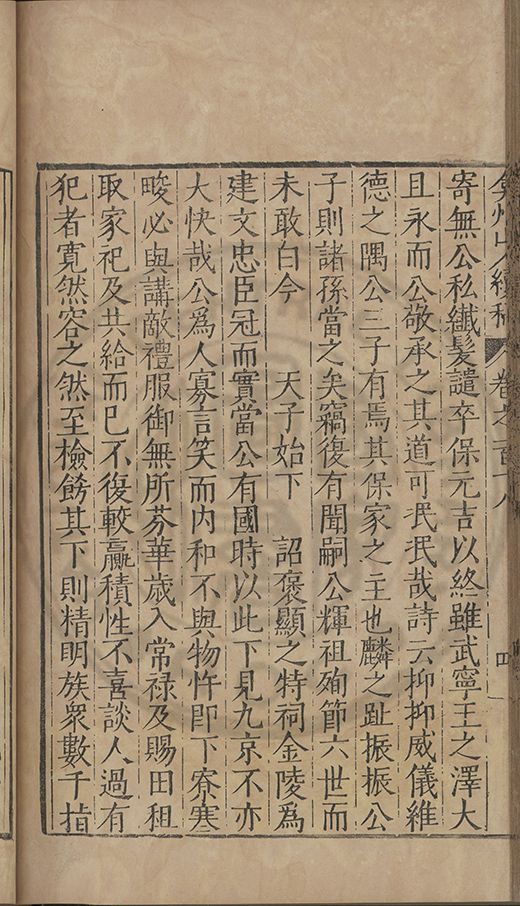 弇州山人續稿 卷之一百十八 四
寄無公私纖髮譴卒保元吉以終雖武寧王之澤大
且永而公敬承之其道可泯泯哉詩云抑抑威儀維
德之隅公三子有焉其保家之主也麟之趾振振公
子則諸孫當之矣竊復有聞嗣公輝祖殉節六世而
未敢白今 天子始下 詔褒顯之特祠金陵爲
建文忠臣冠而實當公有國時以此下見九京不亦
大快哉公爲人寡言笑而内和不與物忤即下寮寒
畯必與講敵禮服御無所芬華歲入常禄及賜田租
取家祀及共給而已不復較贏積性不喜談人過有
犯者寛然容之然至檢飭其下則精明族衆數千指